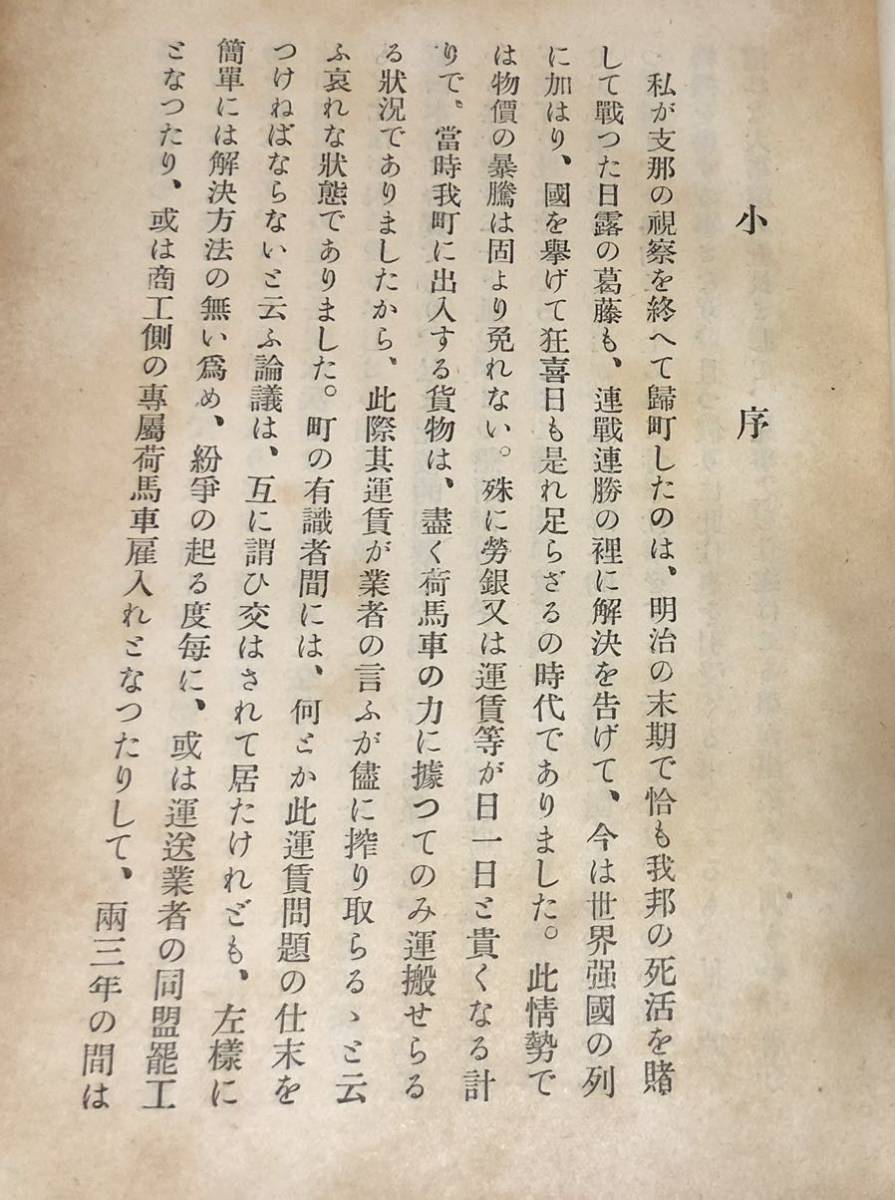 小序
私が支那の視察を終へて歸町したのは、明治の末期で恰も我邦の死活を賭
して戰つた日露の葛藤も、連戰連勝の裡に解決を告げて、今は世界强國の列
に加はり、國を擧げて狂喜日も是れ足らざるの時代でありました。此情勢で
は物價の暴騰は固より免れない。殊に勞銀又は運賃等が日一日と貴くなる計
りで、當時我町に出入する貨物は、盡く荷馬車の力に據つてのみ運搬せらる
る狀況でありましたから、此際其運賃が業者の言ふが儘に搾り取らるゝと云
ふ哀れな狀態でありました。町の有識者間には、何とか此運賃問題の仕末を
つけねばならないと云ふ論議は、互に謂ひ交はされて居たけれども、左樣に
簡單には解決方法の無い爲め、紛爭の起る度每に、或は運送業者の同盟罷工
となつたり、或は商工側の專屬荷馬車雇入れとなつたりして、兩三年の間は